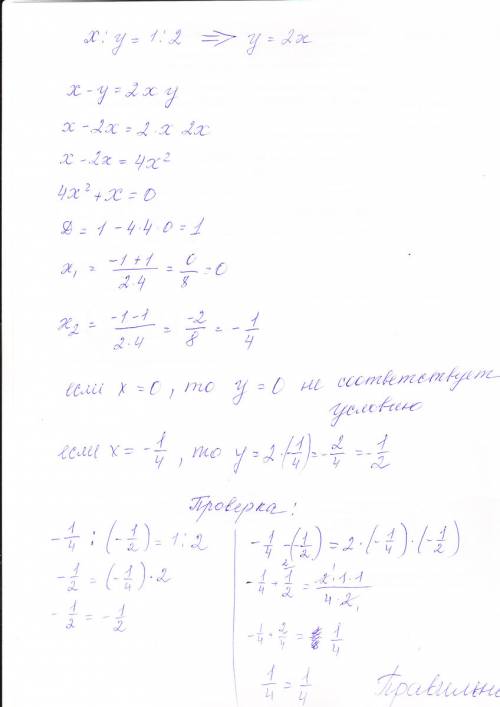 x : y = 1 : 2 ⟹ y = 2x
x − y = 2xy
x − 2x = 2·x 2x
x − 2x = 4x²
4x² + x = 0
D = 1 − 4·4·0 = 1
x₁ = (−1+1)/(2·4) = 0/8 = 0
x₂ = (−1−1)/(2·4) = −2/8 = −1/4
если x = 0, то y = 0 не соответствует
условию
если x = −1/4, то y = 2·(−1/4) = −2/4 = −1/2
Проверка:
−1/4 : (−1/2) = 1 : 2
−1/2 = (−1/4)·2
−1/2 = −1/2
−1/4 − (−1/2) = 2·(−1/4)·(−1/2)
−1/4 + 1/2 = 2·1·1/4·2
−1/4 + 2/4 = 1/4
1/4 = 1/4
Правильно